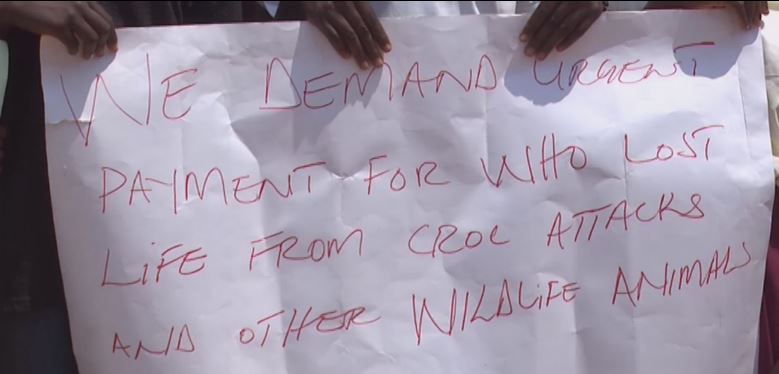 WE DEMAND URGENT
PAYMENT FOR WHO LOST
LiFE FROM CROC ATTACKS
AND OTHER WILDLiFE ANIMALS